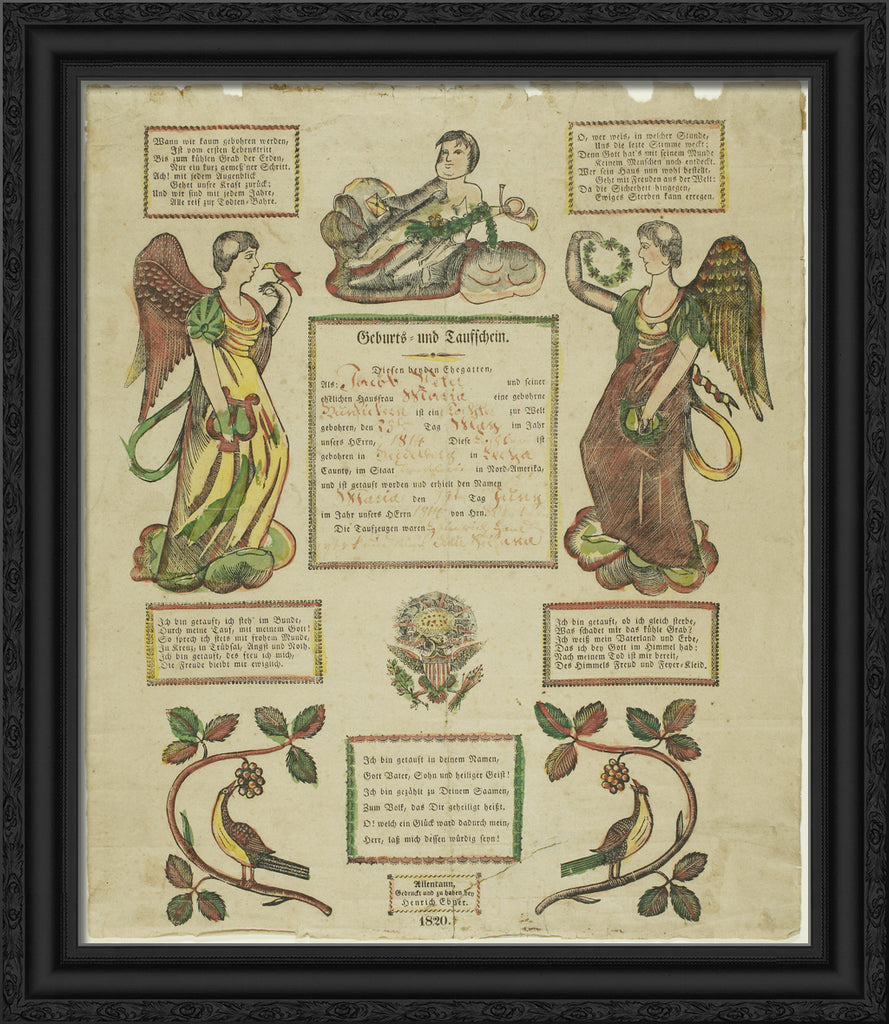 Wann wir kaum gebohren werden,
Ist vom ersten Lebenstritt
Bis zum kühlen Grab der Erden,
Nur ein kurz gemeß'ner Schritt.
Ach! mit jedem Augenblick
Gehet unsre Kraft zurück;
Und wir sind mit jedem Jahre,
Alle reif zur Todten-Bahre.
O, wer weis, in welcher Stunde,
Uns die letzte Stimme weckt;
Denn Gott hat's mit seinem Munde
Keinem Menschen noch entdeckt.
Wer sein Haus nun wohl bestellt,
Geht mit Freuden aus der Welt:
Da die Sicherheit hingegen,
Ewiges Sterben kann erregen.
Geburts- und Taufschein.
Diesen beyden Ehegatten,
Als: Jacob Peter und seiner
ehlichen Hausfrau Maria eine gebohrne
ist eine Tochter zur Welt
gebohren, den 23 Tag May im Jahr
unsers HErrn, 1814 Diese Tochter ist
gebohren in Heidelberg in Lecha
Caunty, im Staat in Nord-Amerika,
und ist getauft worden und erhielt den Namen
Maria den Tag Juny
im Jahr unsers HErrn 1814 von Hrn.
Die Taufzeugen waren
Maria
Ich bin getauft, ich steh' im Bunde,
Durch meine Tauf, mit meinem Gott!
So sprech ich stets mit frohem Munde,
In Kreuz, in Trübsal, Angst und Noth.
Ich bin getauft, des freu ich mich,
Die Freude bleibt mir ewiglich.
Ich bin getauft, ob ich gleich sterbe,
Was schadet mir das kühle Grab?
Ich weiß mein Vaterland und Erbe,
Das ich bey Gott im Himmel hab:
Nach meinem Tod ist mir bereit,
Des Himmels Freud und Feyer-Kleid.
Ich bin getauft in deinem Namen,
Gott Vater, Sohn und heiliger Geist!
Ich bin gezählt zu Deinem Saamen,
Zum Volk, das Dir geheiligt heißt.
O! welch ein Glück ward dadurch mein,
Herr, laß mich dessen würdig seyn!
Allentaun,
Gedruckt und zu haben bey
Henrich Ebner.
1820.